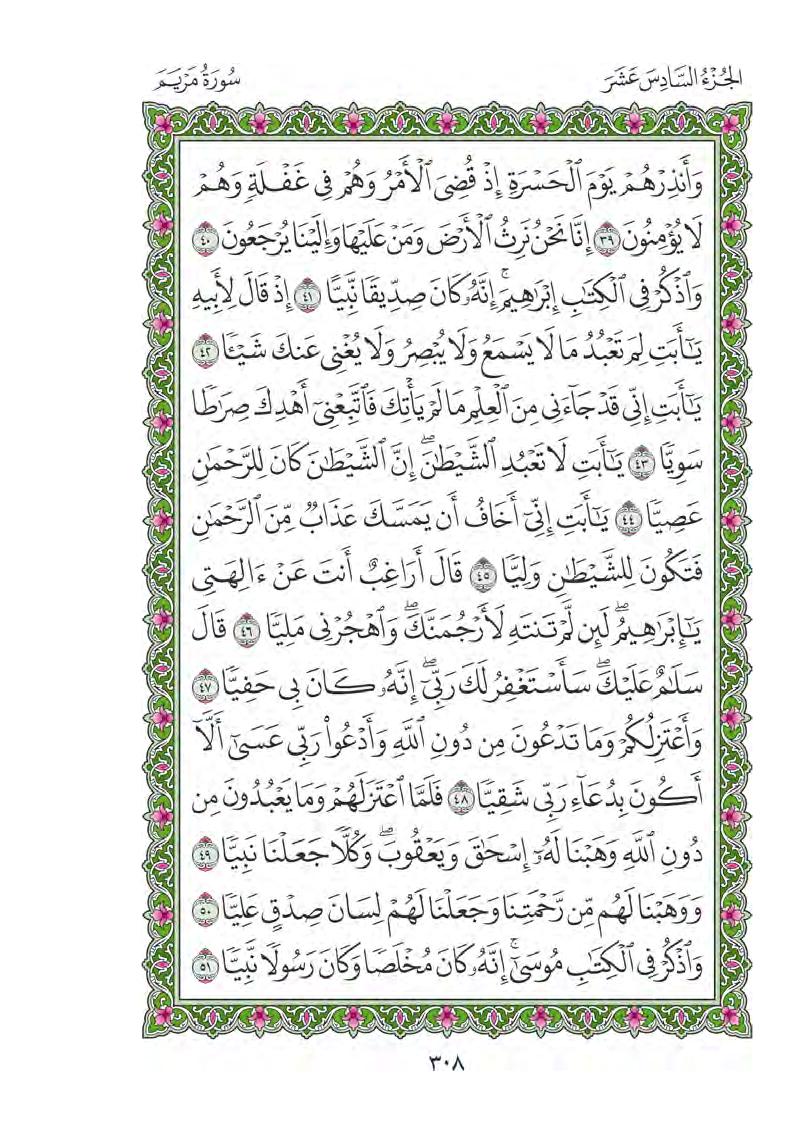 الجُزْءُ السَّادِسَ عَشَرَ
سُورَةُ مَرْيَمَ
وَأَنذِرْهُمْ يَوْمَ ٱلْحَسْرَةِ إِذْ قُضِىَ ٱلْأَمْرُ وَهُمْ فِى غَفْلَةٍ وَهُمْ
لَا يُؤْمِنُونَ ٣٩ إِنَّا نَحْنُ نَرِثُ ٱلْأَرْضَ وَمَنْ عَلَيْهَا وَإِلَيْنَا يُرْجَعُونَ ٤٠
وَٱذْكُرْ فِى ٱلْكِتَٰبِ إِبْرَٰهِيمَ ۚ إِنَّهُۥ كَانَ صِدِّيقًا نَّبِيًّا ٤١ إِذْ قَالَ لِأَبِيهِ
يَٰٓأَبَتِ لِمَ تَعْبُدُ مَا لَا يَسْمَعُ وَلَا يُبْصِرُ وَلَا يُغْنِى عَنكَ شَيْـًٔا ٤٢
يَٰٓأَبَتِ إِنِّى قَدْ جَآءَنِى مِنَ ٱلْعِلْمِ مَا لَمْ يَأْتِكَ فَٱتَّبِعْنِىٓ أَهْدِكَ صِرَٰطًا
سَوِيًّا ٤٣ يَٰٓأَبَتِ لَا تَعْبُدِ ٱلشَّيْطَٰنَ ۖ إِنَّ ٱلشَّيْطَٰنَ كَانَ لِلرَّحْمَٰنِ
عَصِيًّا ٤٤ يَٰٓأَبَتِ إِنِّىٓ أَخَافُ أَن يَمَسَّكَ عَذَابٌ مِّنَ ٱلرَّحْمَٰنِ
فَتَكُونَ لِلشَّيْطَٰنِ وَلِيًّا ٤٥ قَالَ أَرَاغِبٌ أَنتَ عَنْ ءَالِهَتِى
يَٰٓإِبْرَٰهِيمُ ۖ لَئِن لَّمْ تَنتَهِ لَأَرْجُمَنَّكَ ۖ وَٱهْجُرْنِى مَلِيًّا ٤٦ قَالَ
سَلَٰمٌ عَلَيْكَ ۖ سَأَسْتَغْفِرُ لَكَ رَبِّىٓ ۖ إِنَّهُۥ كَانَ بِى حَفِيًّا ٤٧
وَأَعْتَزِلُكُمْ وَمَا تَدْعُونَ مِن دُونِ ٱللَّهِ وَأَدْعُوا۟ رَبِّى عَسَىٰٓ أَلَّآ
أَكُونَ بِدُعَآءِ رَبِّى شَقِيًّا ٤٨ فَلَمَّا ٱعْتَزَلَهُمْ وَمَا يَعْبُدُونَ مِن
دُونِ ٱللَّهِ وَهَبْنَا لَهُۥٓ إِسْحَٰقَ وَيَعْقُوبَ ۖ وَكُلًّا جَعَلْنَا نَبِيًّا ٤٩
وَوَهَبْنَا لَهُم مِّن رَّحْمَتِنَا وَجَعَلْنَا لَهُمْ لِسَانَ صِدْقٍ عَلِيًّا ٥٠
وَٱذْكُرْ فِى ٱلْكِتَٰبِ مُوسَىٰٓ ۚ إِنَّهُۥ كَانَ مُخْلَصًا وَكَانَ رَسُولًا نَّبِيًّا ٥١
٣٠٨